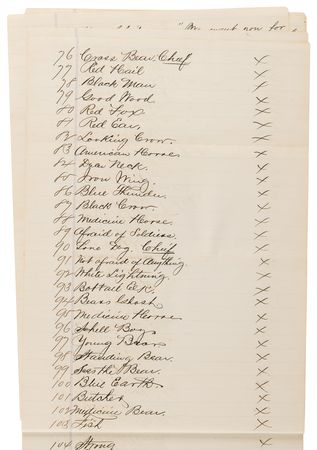 "We want now for
76 Cross Bear, Chief x
77 Red Hail x
78 Black Man x
79 Good Wood x
80 Red Fox x
81 Red Ear, x
82 Looking Crow. x
83 American Horse x
84 Neck. x
85 Iron Wing. x
86 Blue Thunder x
87 Black Crow. x
88 Medicine Horse. x
89 Afraid of Soldiers. x
90 Lone Dog. Chief x
91 Not afraid of Anything. x
92 White Lightning. x
93 Bobtail Elk. x
94 Bears Ghost x
95 Medicine Horse x
96 Shell Boy x
97 Young Bear x
98 Standing Bear. x
99 Sees the Bear. x
100 Blue Earth x
101 Butcher x
102 Medicine Bear. x
103 Fish x
104 Strong x